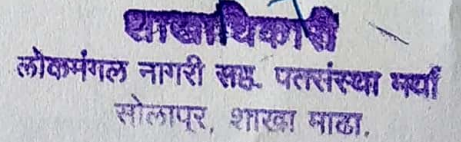 शाखाधिकारी
लोकमंगल नागरी सह. पतसंस्था मर्या
सोलापूर, शाखा माढा.